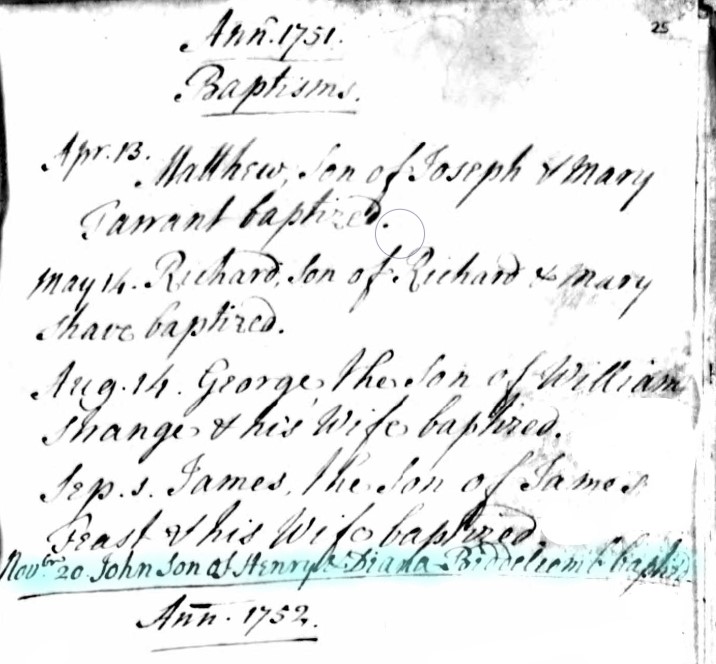 25
Ann. 1751.
Baptisms.
Apr. 13. Matthew, Son of Joseph & Mary
Tarrant baptized.
May 14. Richard, Son of Richard & Mary
Shave baptized.
Aug. 14. George the Son of William
Strange & his Wife baptized.
Sep. 1. James, the Son of James
Feast & his Wife baptized.
Novbr 20 John Son of Henry & Diana Biddelcomb baptizd
Ann. 1752.